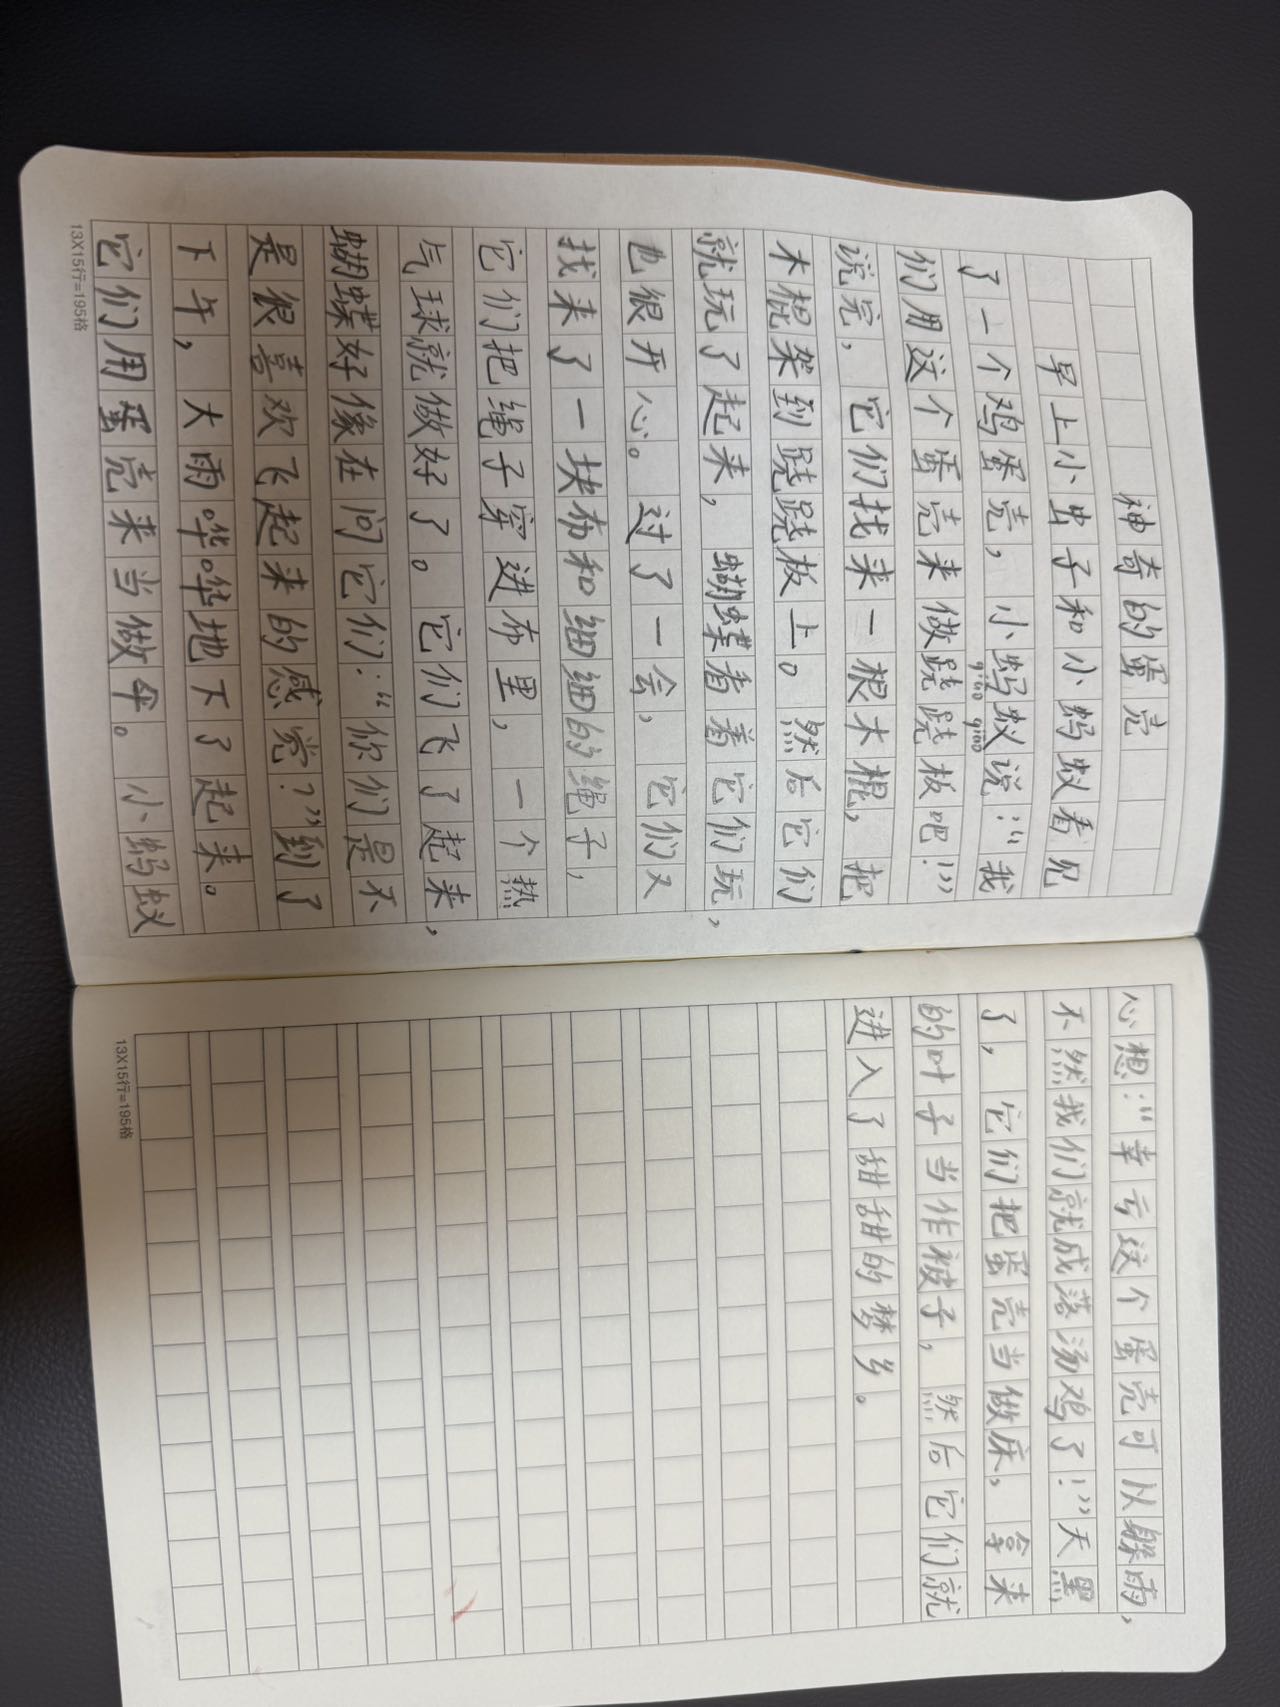 神奇的蛋壳
早上小虫子和小蚂蚁看见
了一个鸡蛋壳，小蚂蚁说：“我
qiāo qiāo
们用这个蛋壳来做跷跷板吧！”
说完，它们找来一根木棍，把
木棍架到跷跷板上。然后它们
就玩了起来，蝴蝶看着它们玩，
也很开心。过了一会，它们又
找来了一块布和细细的绳子，
它们把绳子穿进布里，一个热
气球就做好了。它们飞了起来，
蝴蝶好像在问它们：“你们是不
是很喜欢飞起来的感觉？”到了
下午，大雨哗哗地下了起来。
它们用蛋壳来当做伞。小蚂蚁
13X15行=195格
心想：“幸亏这个蛋壳可以躲雨，
不然我们就成落汤鸡了！”天黑
了，它们把蛋壳当做床，拿来
的叶子当作被子，然后它们就
进入了甜甜的梦乡。
13X15行=195格